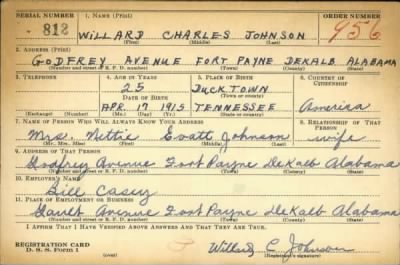 SERIAL NUMBER 1. NAME (Print) ORDER NUMBER
812 WILLARD CHARLES JOHNSON 956
(First) (Middle) (Last)
2. ADDRESS (Print)
GODFREY AVENUE FORT PAYNE DEKALB ALABAMA
(Number and street or R. F. D. number) (Town) (County) (State)
3. TELEPHONE 4. AGE IN YEARS 5. PLACE OF BIRTH 6. COUNTRY OF CITIZENSHIP
25 DUCKTOWN
(Town or county)
DATE OF BIRTH
APR. 17 1915 TENNESSEE America
(Exchange) (Number) (Mo.) (Day) (Yr.) (State or country)
7. NAME OF PERSON WHO WILL ALWAYS KNOW YOUR ADDRESS 8. RELATIONSHIP OF THAT PERSON
Mrs. Mittie Evatt Johnson wife
(Mr., Mrs., Miss) (First) (Middle) (Last)
9. ADDRESS OF THAT PERSON
Godfrey Avenue Fort Payne DeKalb Alabama
(Number and street or R. F. D. number) (Town) (County) (State)
10. EMPLOYER'S NAME
Bill Casey
11. PLACE OF EMPLOYMENT OR BUSINESS
Gault Avenue Fort Payne DeKalb Alabama
(Number and street or R. F. D. number) (Town) (County) (State)
I AFFIRM THAT I HAVE VERIFIED ABOVE ANSWERS AND THAT THEY ARE TRUE.
REGISTRATION CARD
D. S. S. Form 1 (over) Willard C Johnson
(Registrant's signature)